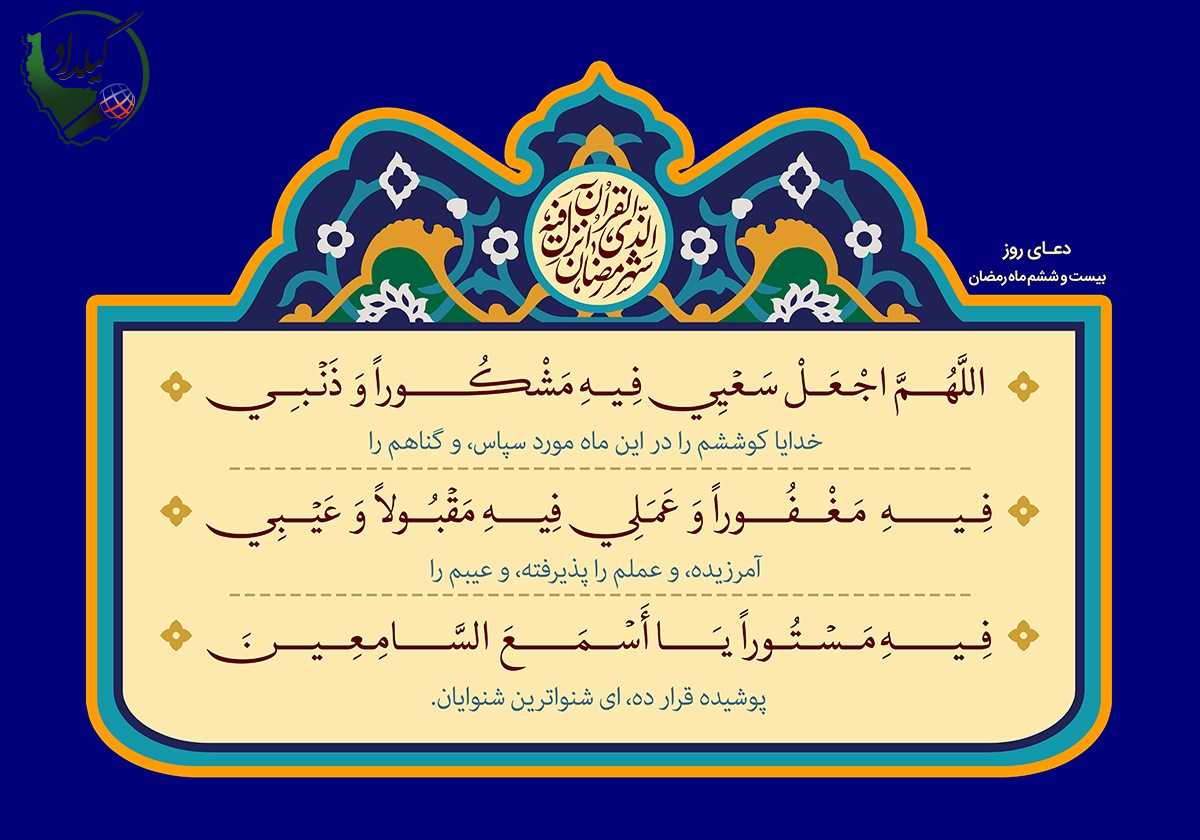 گیلداد
شهر رمضان
الذی انزل فیه
القرآن
دعای روز
بیست و ششم ماه رمضان
اللَّهُمَّ اجْعَلْ سَعْيِي فِيهِ مَشْكُوراً وَ ذَنْبِي
خدایا کوششم را در این ماه مورد سپاس، و گناهم را
فِيهِ مَغْفُوراً وَ عَمَلِي فِيهِ مَقْبُولاً وَ عَيْبِي
آمرزیده، و عملم را پذیرفته، و عیبم را
فِيهِ مَسْتُوراً يَا أَسْمَعَ السَّامِعِينَ
پوشیده قرار ده، ای شنواترین شنوایان.